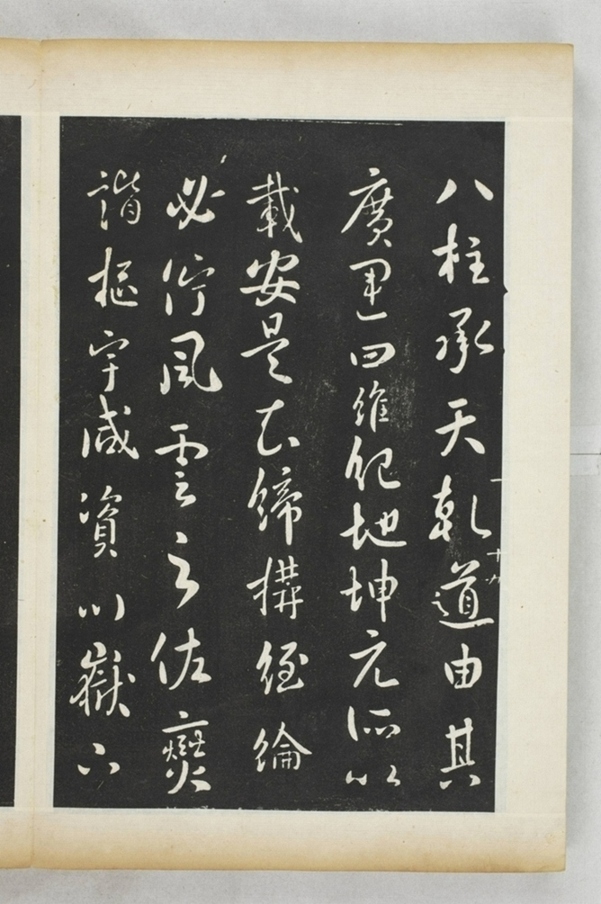 八柱承天乾道由其
十九
廣運四維紀地坤元所以
載安是知締構經綸
必佇風雲之佐燮
諧樞宰咸資川嶽